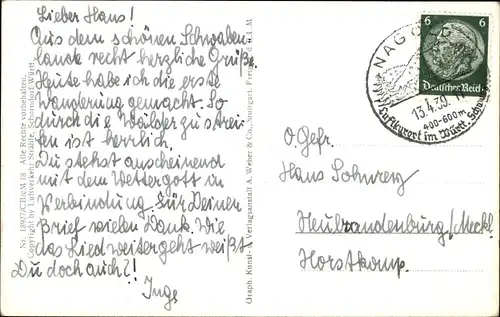 Lieber Hans!
Aus dem schönen Schwaben
lande recht herzliche Grüße.
Heute habe ich die erste
Wanderung gemacht. So
durch die Wälder zu strei-
fen ist herrlich.
Du stehst anscheinend
mit dem Wettergott in
Verbindung. Für Deinen
Brief vielen Dank. Wie
das Lied weitergeht weißt
Du doch auch?!
Inge
Nr. 18907/CB/cM 18 Alle Rechte vorbehalten.
Copyright by Luftverkehr Strähle, Schorndorf Württ.
Graph. Kunst- u. Verlagsanstalt A. Weber & Co., Stuttgart.
NAGOLD
13.4.39
400-600 m
Luftkurort im Württ.
6 6
Deutsches Reich
O. Gefr.
Hans
Neubrandenburg/Meckl.
Horstkamp.